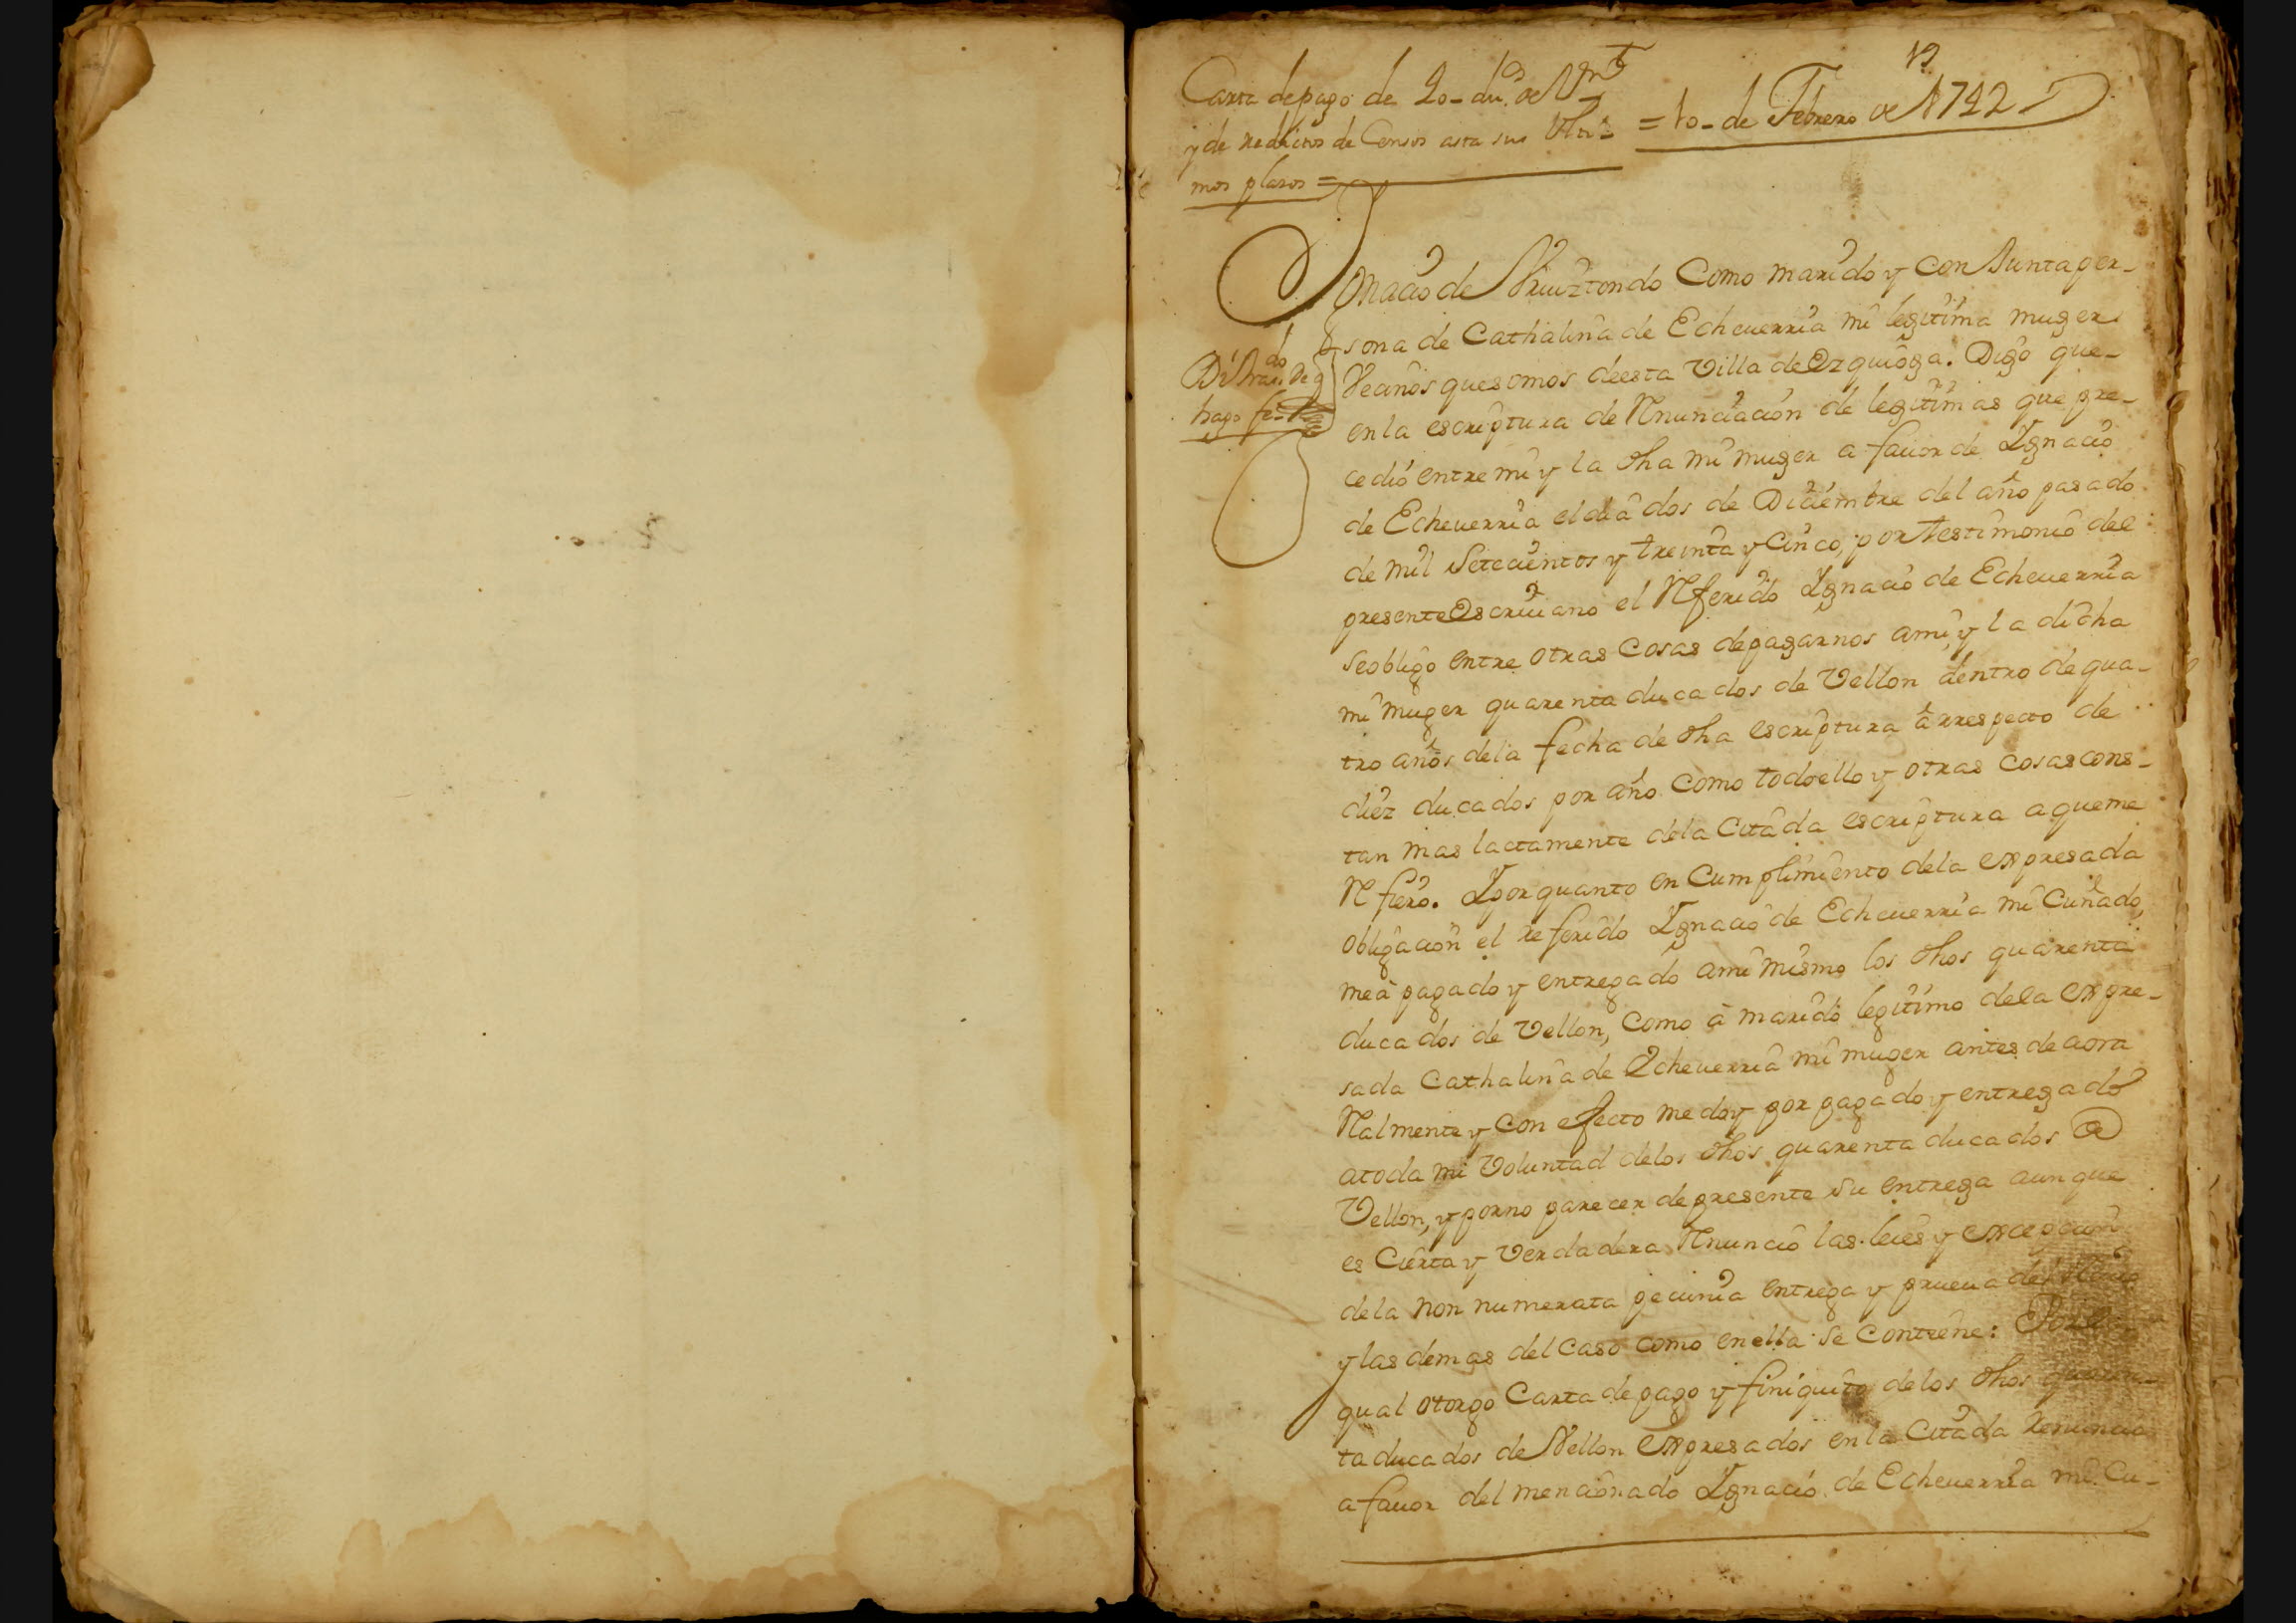 Carta de pago de 40 du.os de V.on
y de redditos de Censos asta sus Ulti-
mos plazos =
= 10 de Febrero de 1742
Ygnacio de Vriuztondo Como marido y conJunta per-
sona de Cathalina de Echeuerria mi legitima muger
Vecinos que somos de esta Villa de Ezquioga. Digo que
en la escriptura de Rnunciacion de legitimas que pre-
cedio entre mi y la dha mi muger a fauor de Ygnacio
de Echeuerria el dia dos de Diciembre del año pasado
de mil Setecientos y treinta y Cinco, por testimonio del
presente Escriuano el Rferido Ygnacio de Echeuerria
se obligo entre otras Cosas de pagarnos a mi, y la dicha
mi muger quarenta ducados de Vellon dentro de qua-
tro años de la fecha de dha escriptura a rrespecto de
diez ducados por año como todo ello y otras cosas cons-
tan mas lactamente de la Citada escriptura a que me
Rfiero. Y por quanto en Cumplimiento de la expresada
obligacion el referido Ygnacio de Echeuerria mi Cuñado,
me à pagado y entregado a mi mismo los dhos quarenta
ducados de Vellon, como à marido legitimo de la expre-
sada Cathalina de Echeuerria mi muger antes de aora
Ralmente y con efecto me doy por pagado y entregado
a toda mi Voluntad de los dhos quarenta ducados de
Vellon, y por no parecer de presente su entrega aunque
es Cierta y Verdadera Rnuncio las leies y excepcion
de la non numerata pecunia entrega y prueua del
y las demas del caso como en ella se contiene: Por lo
qual otorgo Carta de pago y finiquito de los dhos quaren-
ta ducados de Vellon expresados en la Citada Renuncia
a fauor del mencionado Ygnacio de Echeuerria mi Cu-
Di tras.do de q
hago fe